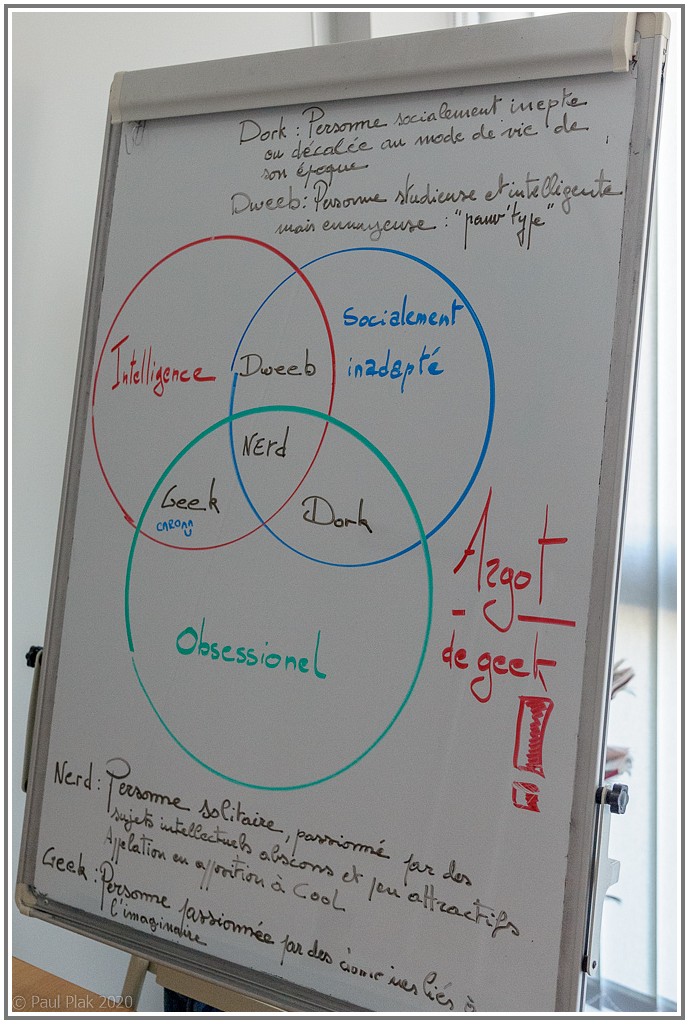 Dork : Personne socialement inepte
ou décalée au mode de vie de
son époque
Dweeb : Personne studieuse et intelligente
mais ennuyeuse : "pauv'type"
Intelligence
Socialement
inadapté
Dweeb
NErd
Geek
Dork
Obsessionel
Argot
de geek
!
Nerd : Personne solitaire, passionné par des
sujets intellectuels abscons et peu attractifs.
Appelation en opposition à Cool
Geek : Personne passionnée par des liés à
l'imaginaire
© Paul Plak 2020